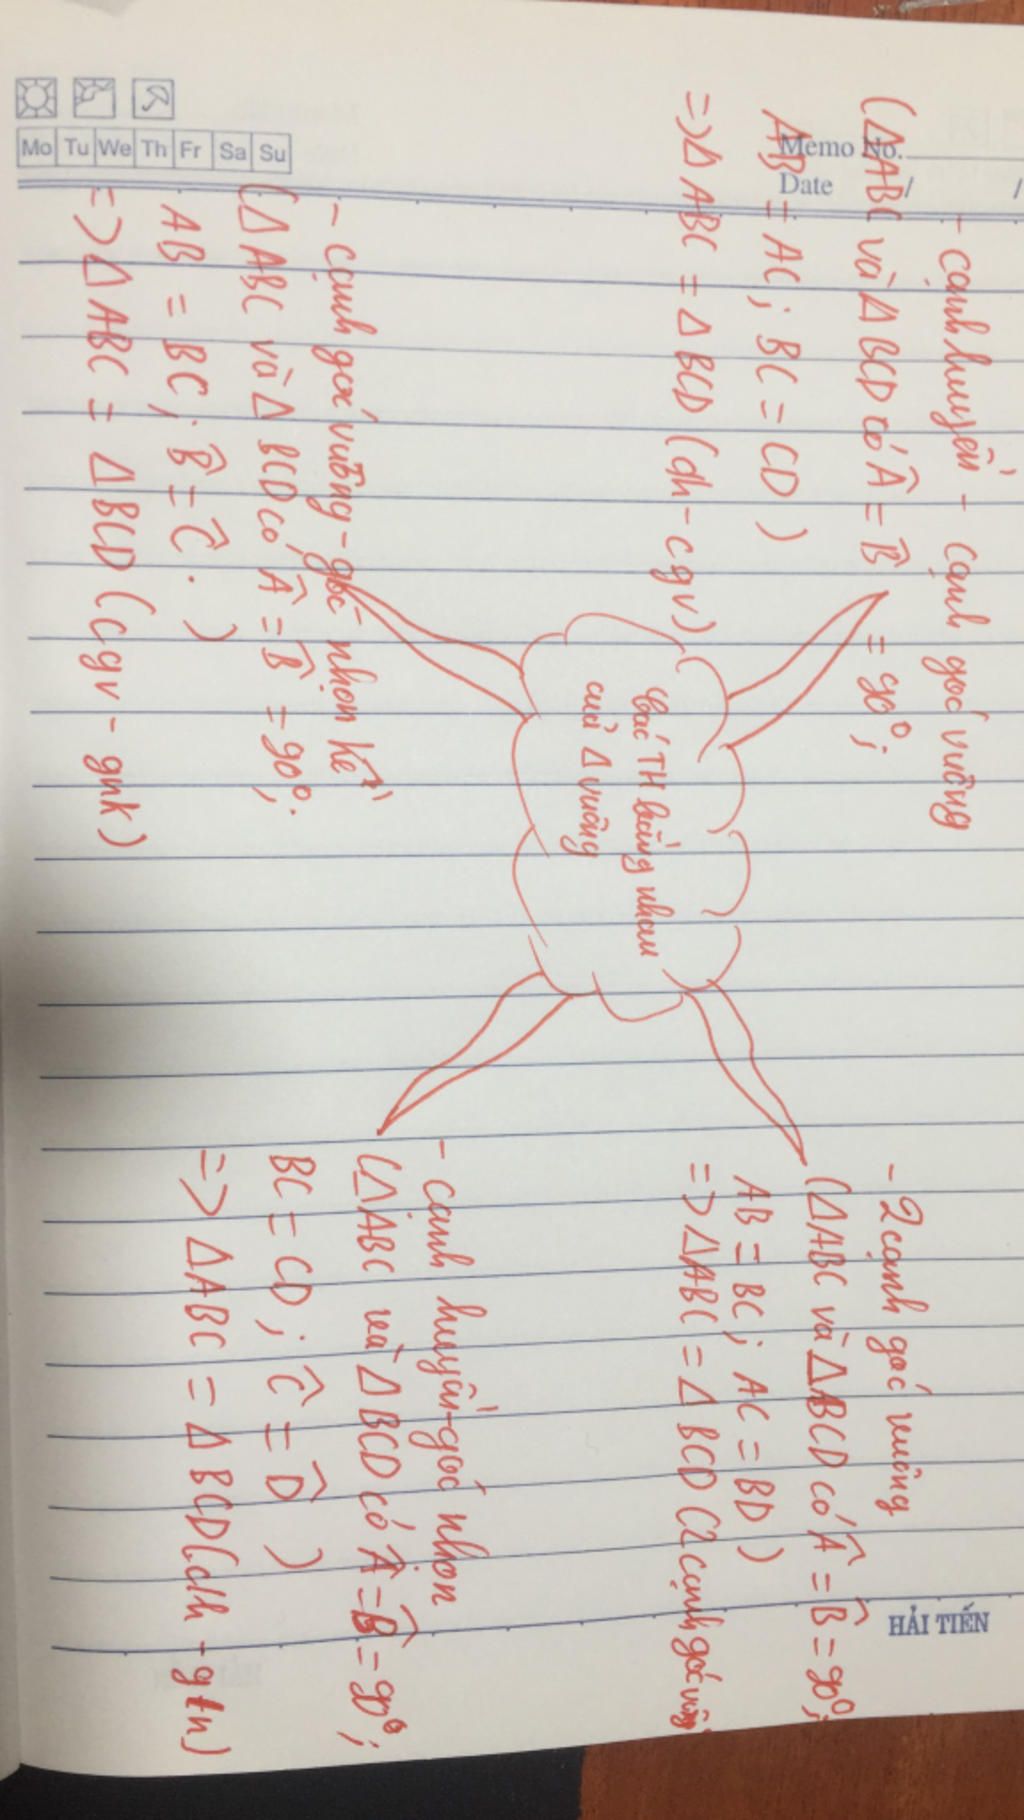 Mo Tu We Th Fr Sa Su
Memo No.
Date / /
- cạnh huyền - cạnh góc vuông
(Δ ABC và Δ BCD có Â = B̂ = 90°;
AB = AC; BC = CD)
=> Δ ABC = Δ BCD (ch - cgv)
- 2 cạnh góc vuông
(ΔABC và ΔBCD có Â = B̂ = 90°;
AB = BC; AC = BD)
=> ΔABC = Δ BCD (2 cạnh góc vuông
Các TH bằng nhau
của Δ vuông
- cạnh góc vuông - góc nhọn kề
(Δ ABC và Δ BCD có Â = B̂ = 90°;
AB = BC; B̂ = Ĉ. )
=> Δ ABC = Δ BCD (cgv - gnk)
- cạnh huyền - góc nhọn
(ΔABC và Δ BCD có Â = B̂ = 90°;
BC = CD; Ĉ = D̂ )
=> Δ ABC = Δ BCD (ch - gn)
HẢI TIẾN